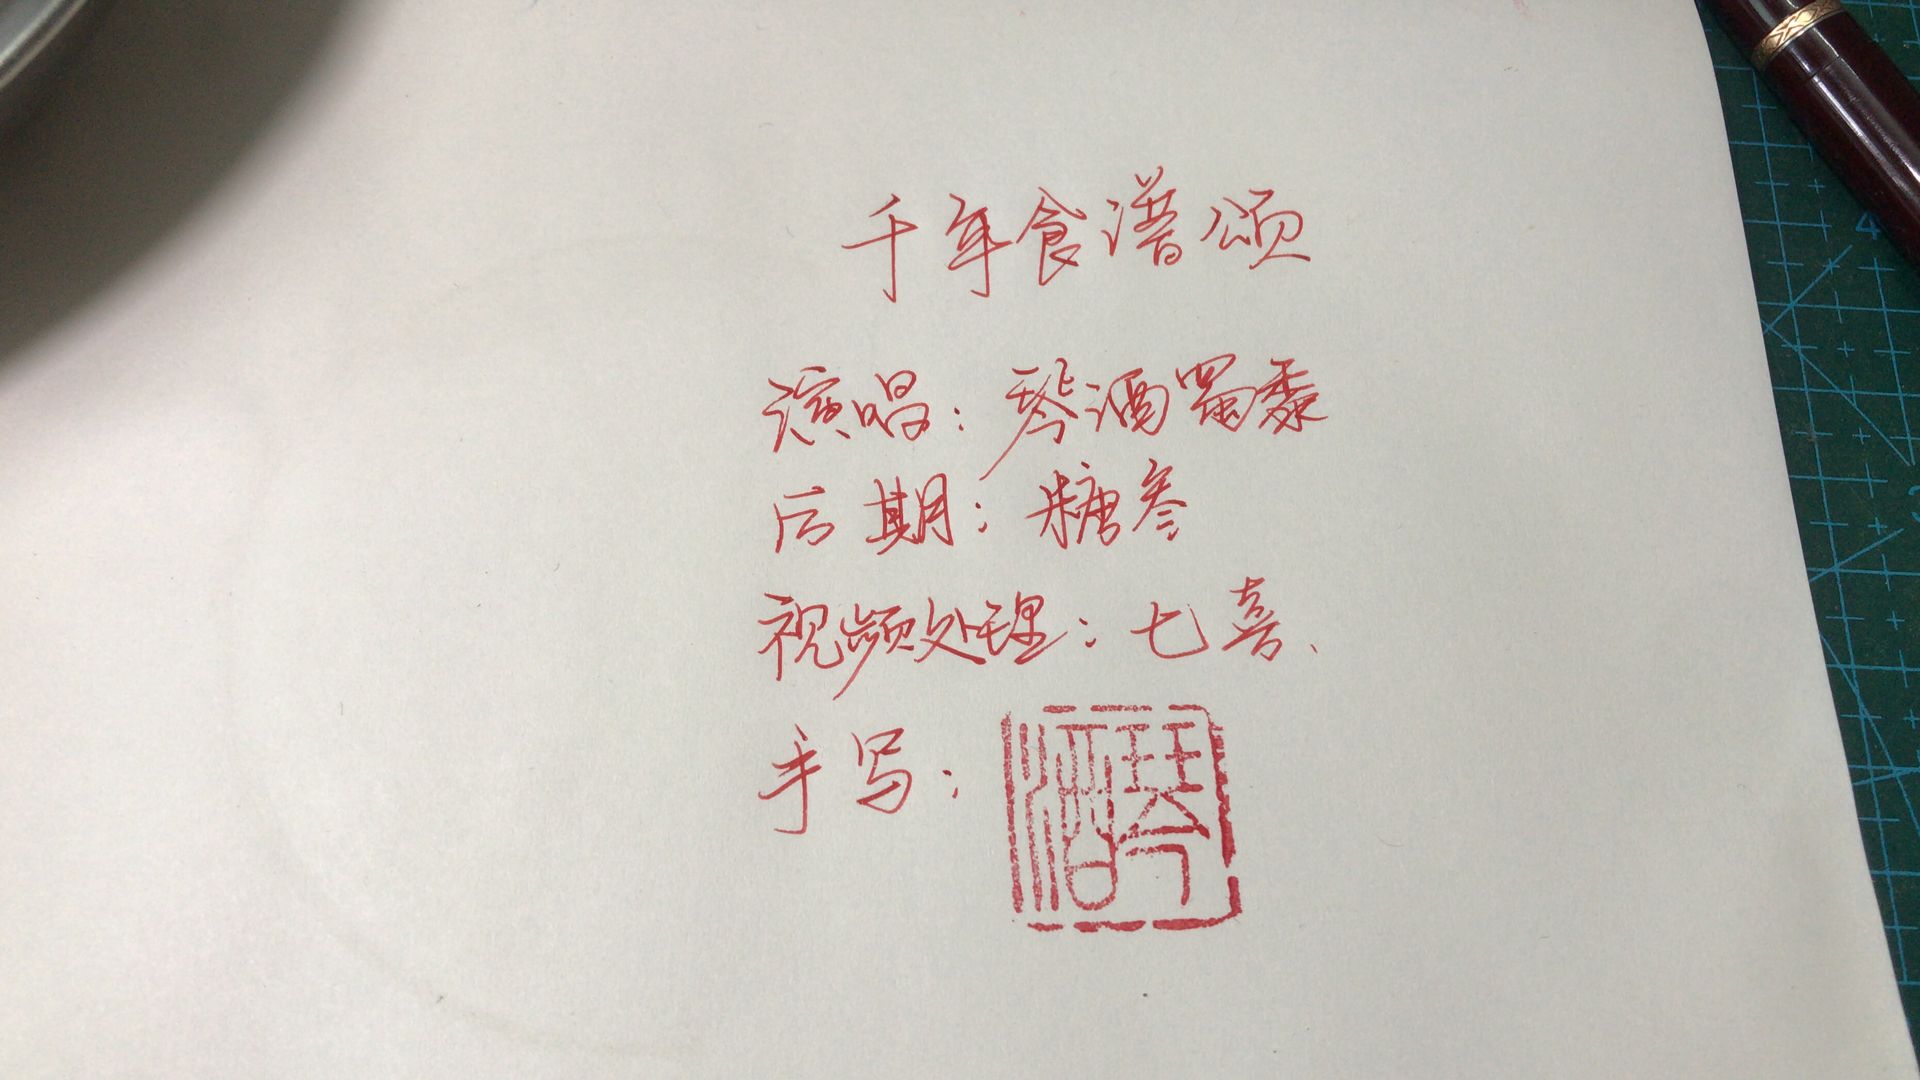 千年食谱颂
演唱：琴酒蜀黍
后期：糖叁
视频处理：七喜、
手写：琴酒